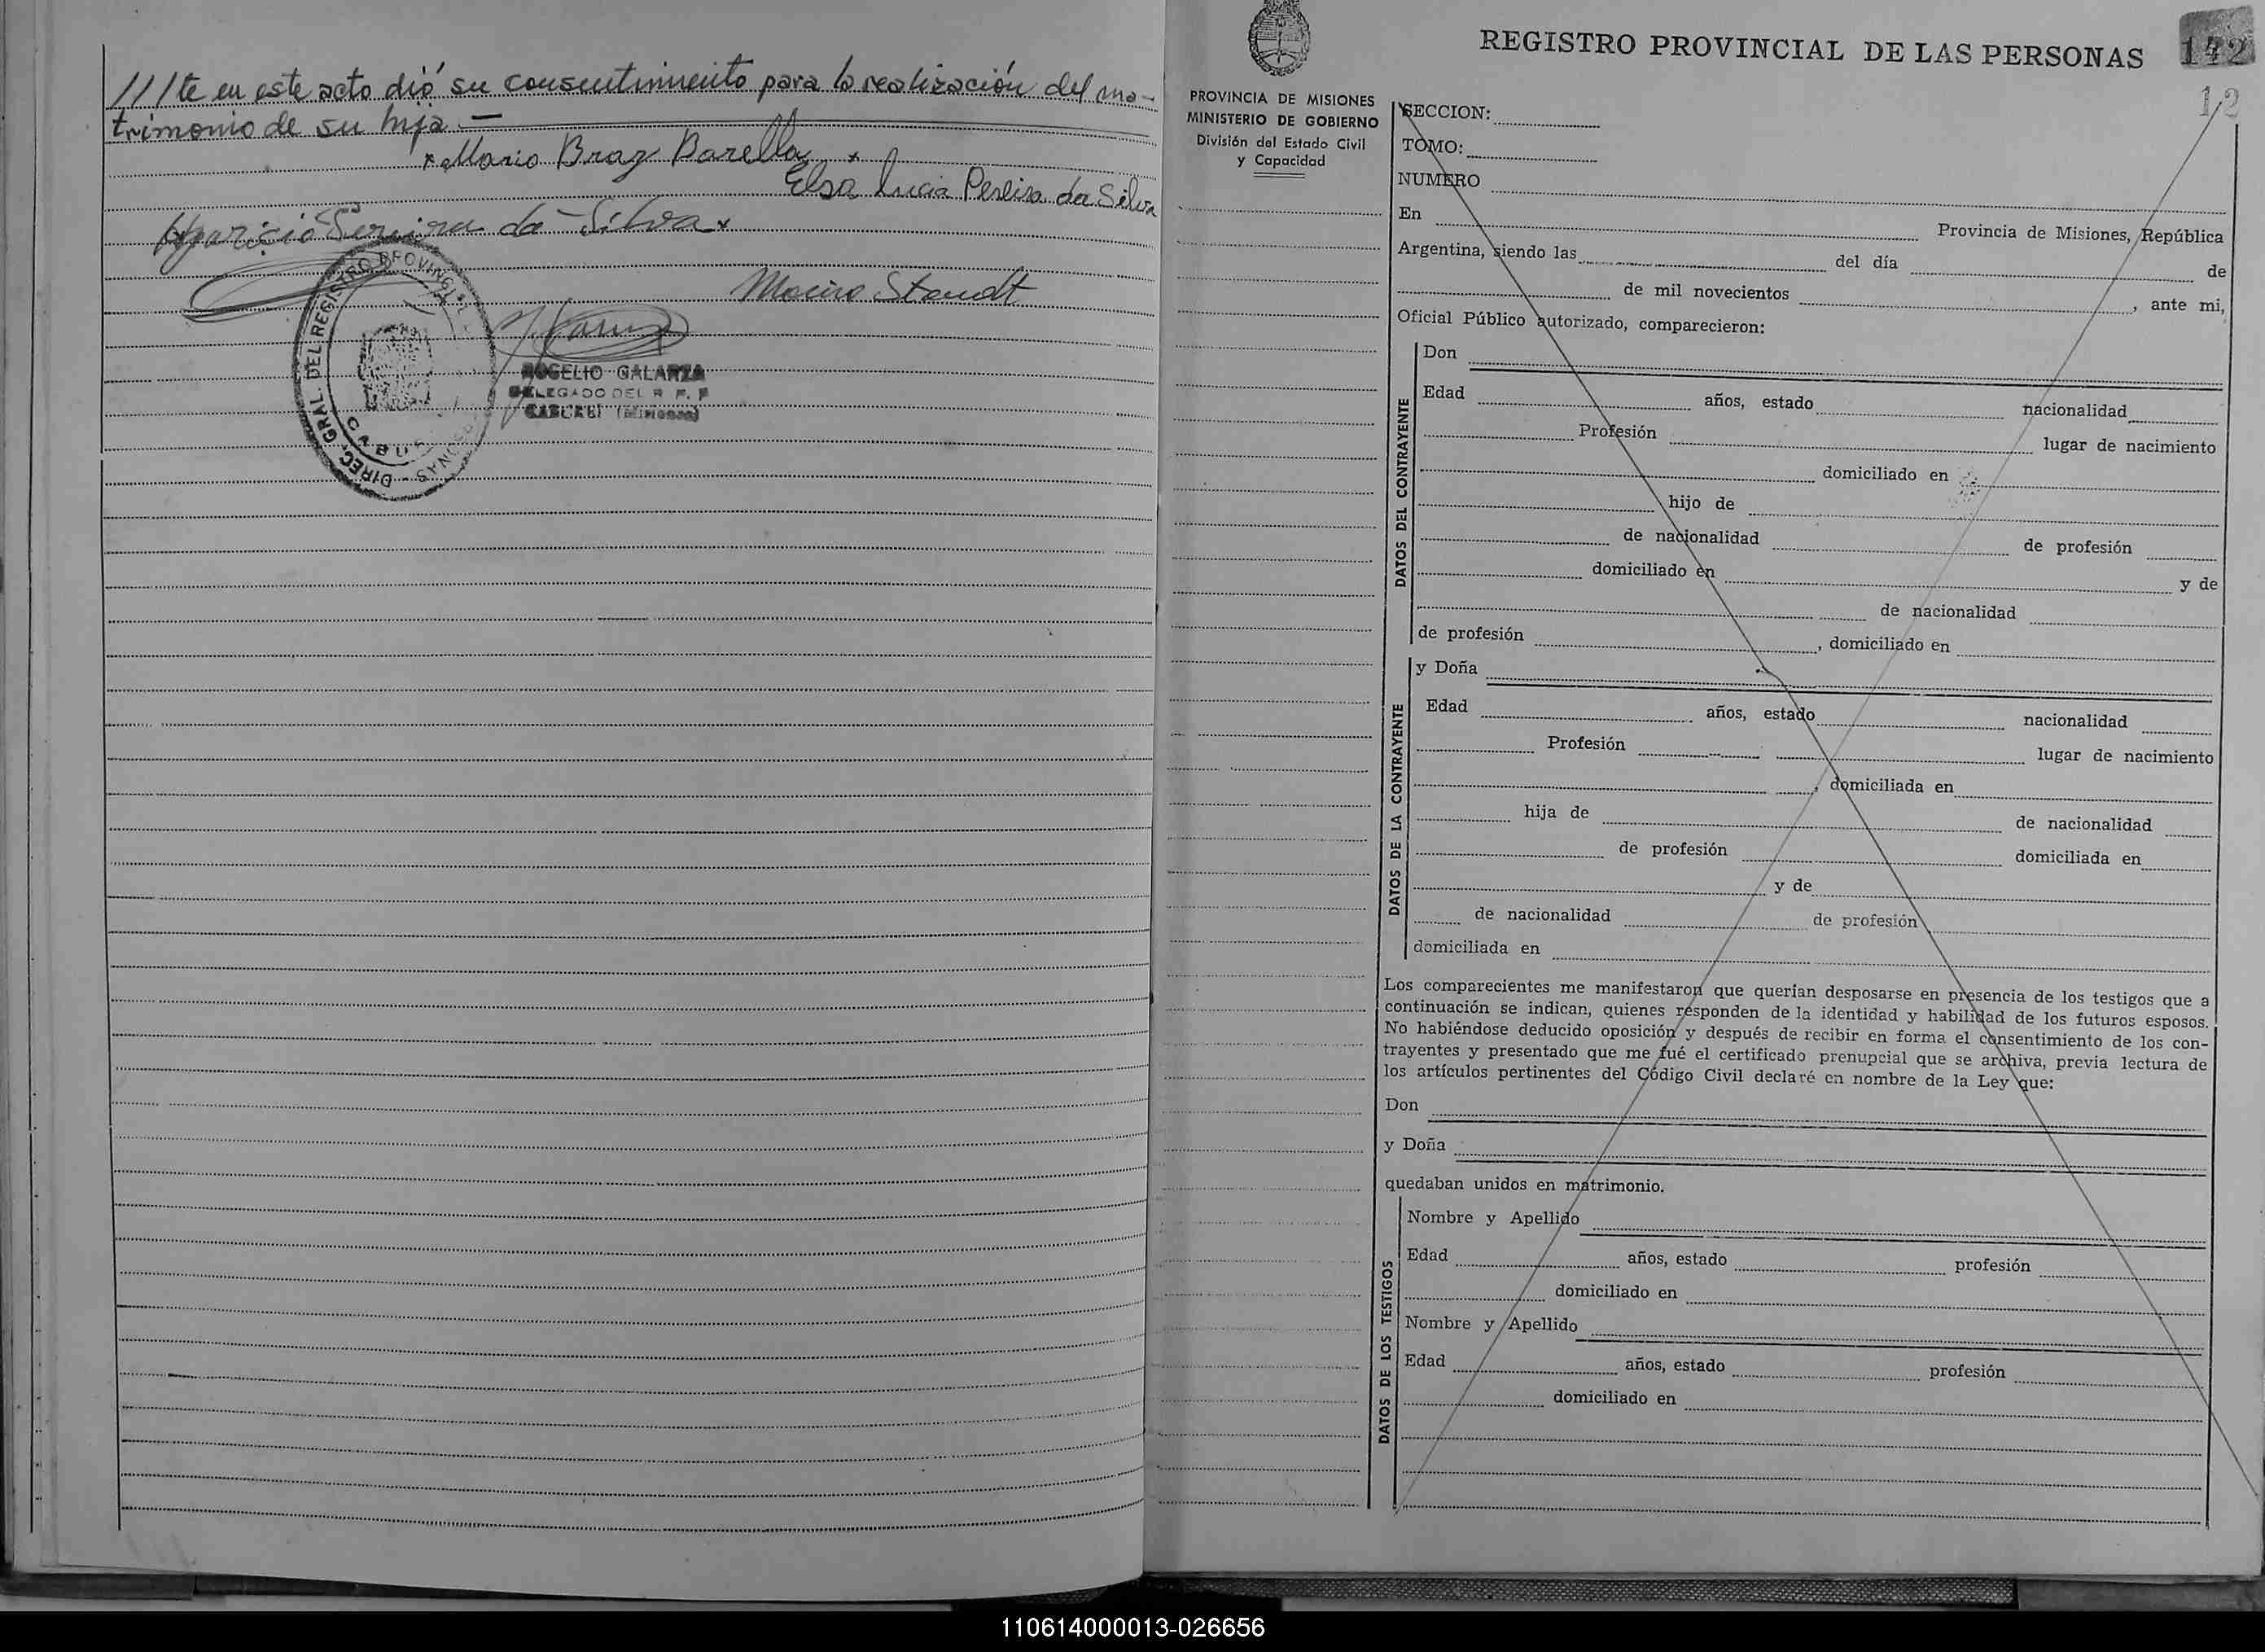 ///te en este acto dió su consentimiento para la realización del ma-
trimonio de su hija.—
x Mario Braz Barella x
Elsa Lucia Pereira da Silva
Aparicio Pereira da Silva x
Mauro Staudt
ROGELIO GALARZA
DELEGADO DEL R. P. P
DIREC. GRAL. DEL REGISTRO PROVINCIAL
REGISTRO PROVINCIAL DE LAS PERSONAS
142
12
PROVINCIA DE MISIONES
MINISTERIO DE GOBIERNO
División del Estado Civil
y Capacidad
SECCION:
TOMO:
NUMERO
En Provincia de Misiones, República
Argentina, siendo las del día de
de mil novecientos , ante mi,
Oficial Público autorizado, comparecieron:
DATOS DEL CONTRAYENTE
Don
Edad años, estado nacionalidad
Profesión lugar de nacimiento
domiciliado en
hijo de
de nacionalidad de profesión
domiciliado en y de
de nacionalidad
de profesión , domiciliado en
DATOS DE LA CONTRAYENTE
y Doña
Edad años, estado nacionalidad
Profesión lugar de nacimiento
, domiciliada en
hija de de nacionalidad
de profesión domiciliada en
y de
de nacionalidad de profesión
domiciliada en
Los comparecientes me manifestaron que querían desposarse en presencia de los testigos que a
continuación se indican, quienes responden de la identidad y habilidad de los futuros esposos.
No habiéndose deducido oposición y después de recibir en forma el consentimiento de los con-
trayentes y presentado que me fué el certificado prenupcial que se archiva, previa lectura de
los artículos pertinentes del Código Civil declaré en nombre de la Ley que:
Don
y Doña
quedaban unidos en matrimonio.
DATOS DE LOS TESTIGOS
Nombre y Apellido
Edad años, estado profesión
domiciliado en
Nombre y Apellido
Edad años, estado profesión
domiciliado en
110614000013-026656